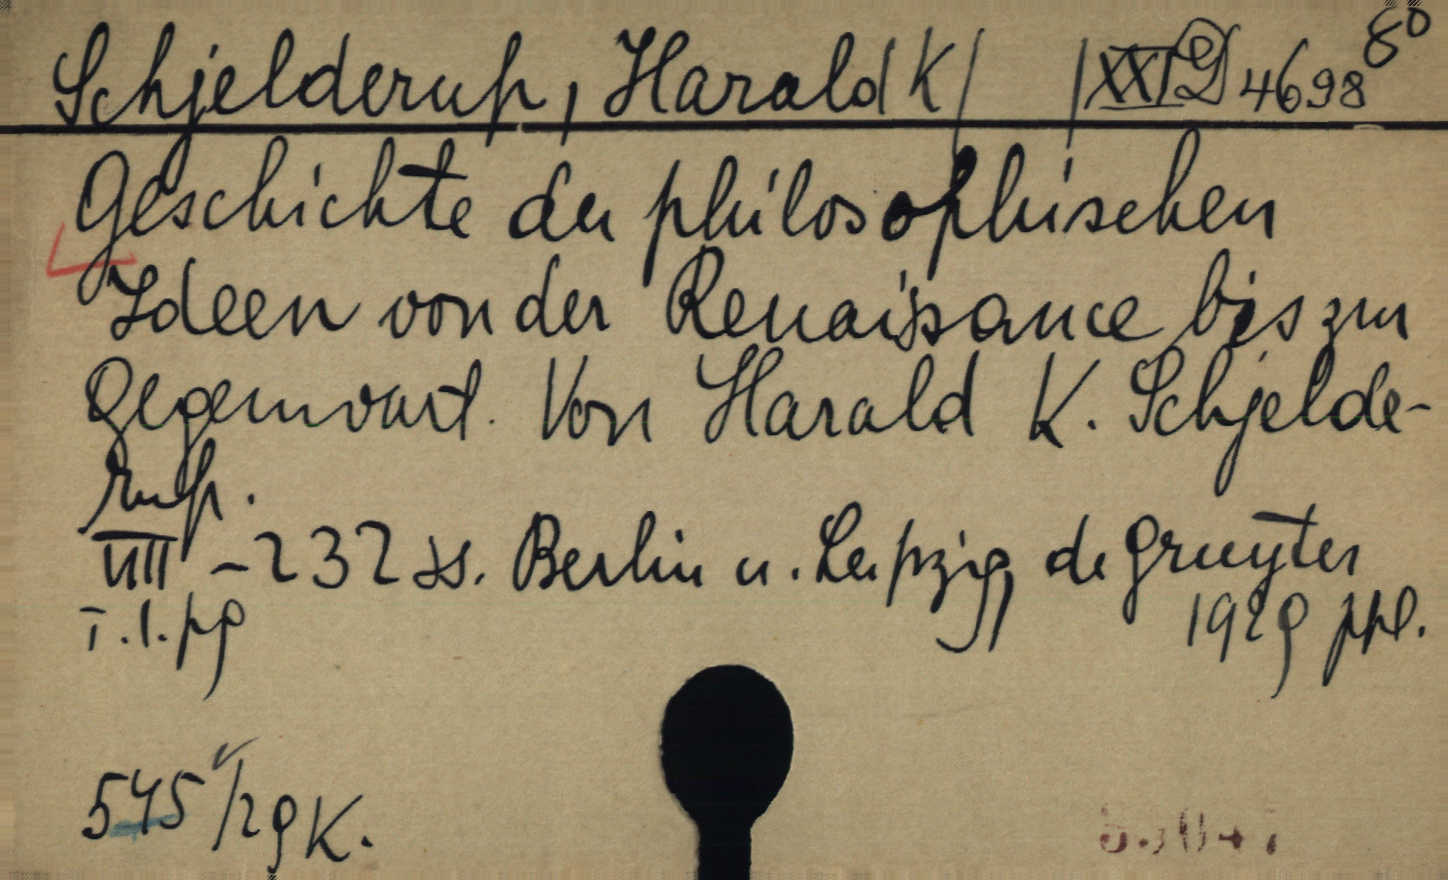 Schjelderup, Harald K/ /XXI D 4698 8°
Geschichte der philosophischen
Ideen von der Renaissance bis zur
Gegenwart. Von Harald K. Schjelde-
rup.
VIII - 232 ss. Berlin u. Leipzig, de Gruyter
I. l. pg 1929 ppl.
545/29 K.